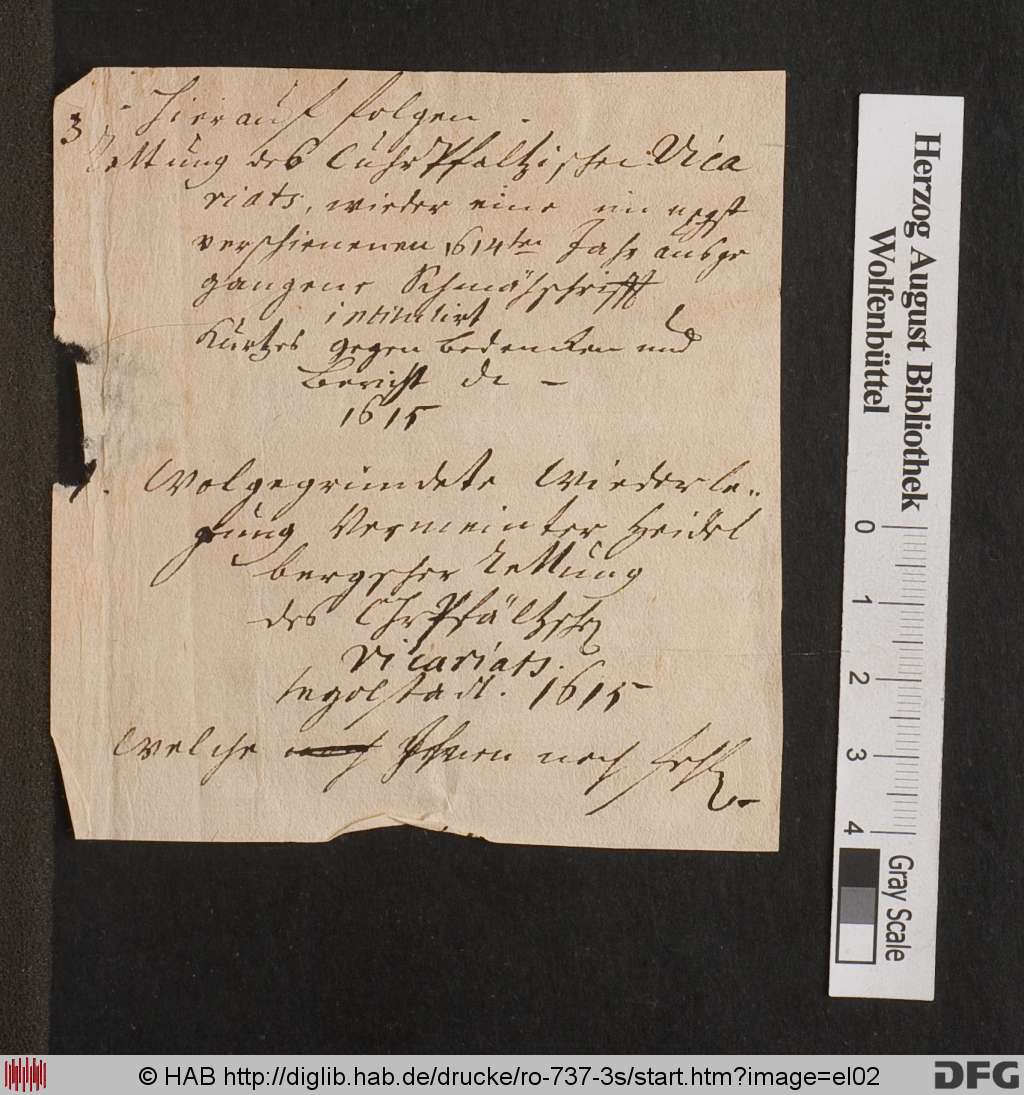 Hierauf folgen
3
Rettung des CuhrPfaltzischen Vica
riats, wieder eine im negst
verschienenen 1614ten Jahr ausge
gangene Schmähschrifft
intitulirt
Kurtzes gegen bedencken und
Bericht de –
1615
Wolgegründete Wiederle„
gung Vermeinter Heidel
bergscher Rettung
des ChrPfältzschen
Vicariats.
Ingolstadt. 1615
Welche Ihnen noch
Herzog August Bibliothek
Wolfenbüttel
0
1
2
3
4
Gray Scale
© HAB http://diglib.hab.de/drucke/ro-737-3s/start.htm?image=el02
DFG